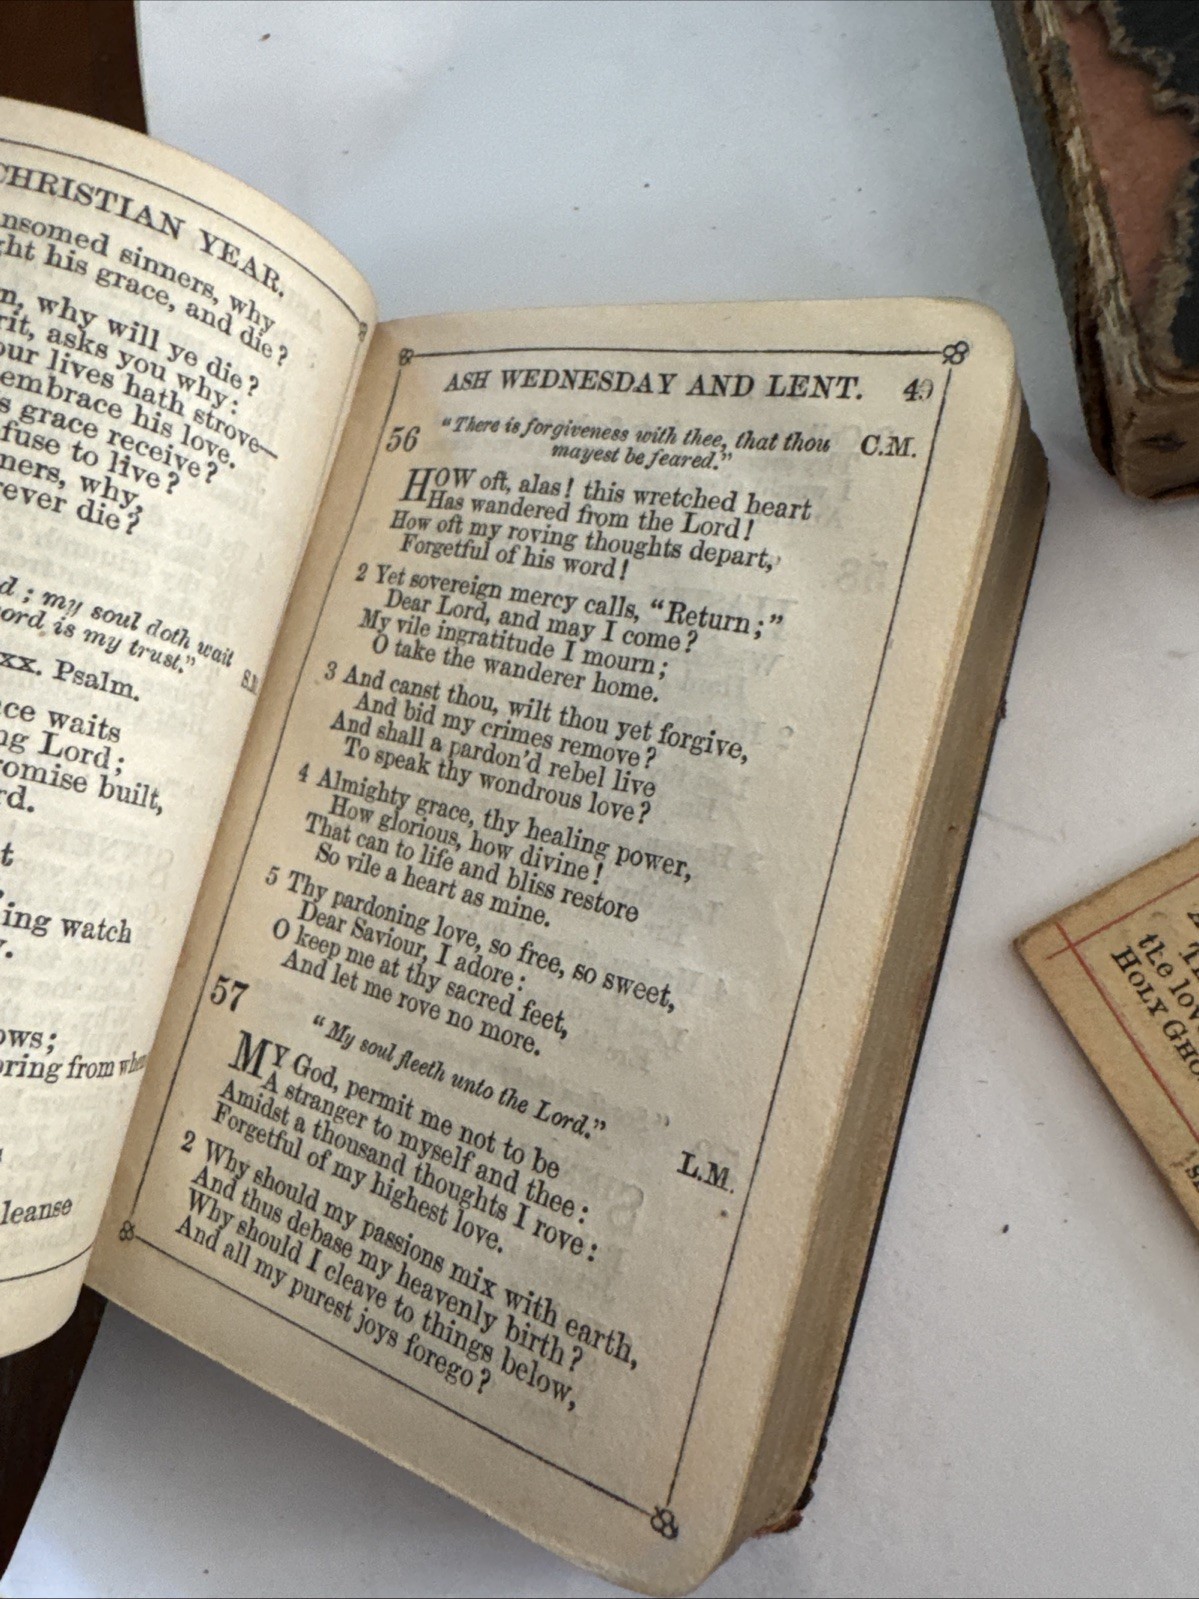 CHRISTIAN YEAR.
nsomed sinners, why
ght his grace, and die?
n, why will ye die?
rit, asks you why:
our lives hath strove—
embrace his love.
s grace receive?
fuse to live?
ners, why,
ever die?
d; my soul doth wait
ord is my trust."
xx. Psalm.
ce waits
ng Lord;
romise built,
rd.
t
ing watch
ows;
oring from when
leanse
ASH WEDNESDAY AND LENT. 49
56 "There is forgiveness with thee, that thou C.M.
mayest be feared."
HOW oft, alas! this wretched heart
Has wandered from the Lord!
How oft my roving thoughts depart,
Forgetful of his word!
2 Yet sovereign mercy calls, "Return;"
Dear Lord, and may I come?
My vile ingratitude I mourn;
O take the wanderer home.
3 And canst thou, wilt thou yet forgive,
And bid my crimes remove?
And shall a pardon'd rebel live
To speak thy wondrous love?
4 Almighty grace, thy healing power,
How glorious, how divine!
That can to life and bliss restore
So vile a heart as mine.
5 Thy pardoning love, so free, so sweet,
Dear Saviour, I adore:
O keep me at thy sacred feet,
And let me rove no more.
57 "My soul fleeth unto the Lord." L.M.
MY God, permit me not to be
A stranger to myself and thee:
Amidst a thousand thoughts I rove:
Forgetful of my highest love.
2 Why should my passions mix with earth,
And thus debase my heavenly birth?
Why should I cleave to things below,
And all my purest joys forego?
the lov
HOLY GHO